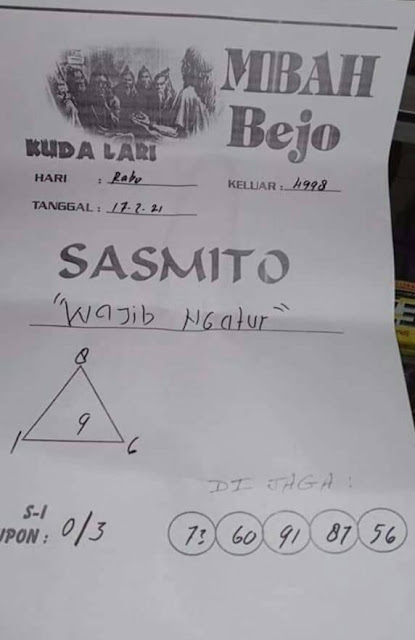 MBAH
Bejo
KUDA LARI
HARI : Rabu
KELUAR : 4998
TANGGAL : 17-2-21
SASMITO
"Wajib Ngatur"
8
9
1 6
DI JAGA :
S-1
UPON : 0/3
73 60 91 87 56